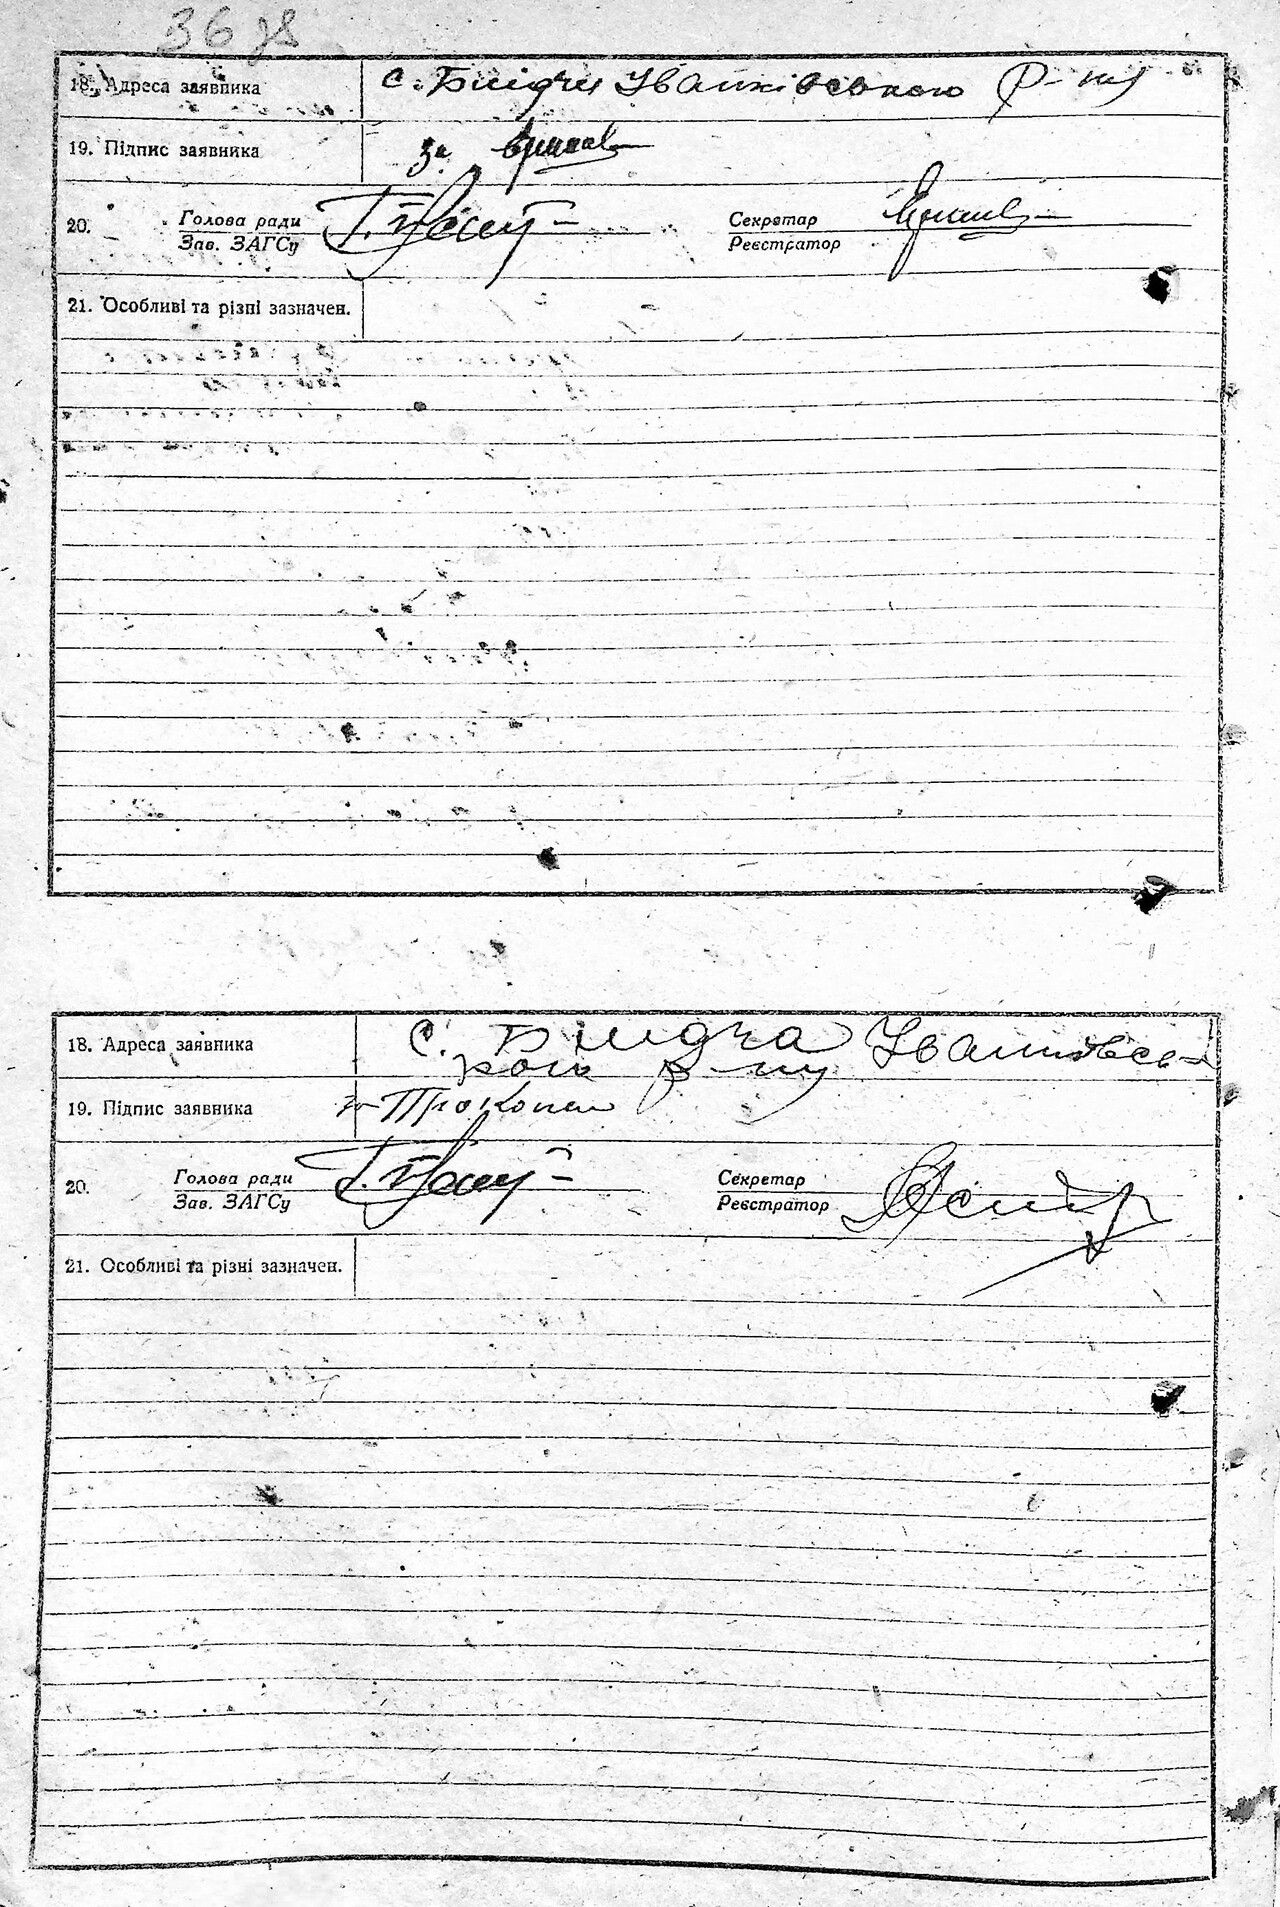 36 зв
18. Адреса заявника с. Блідча Іванківського р-ну
19. Підпис заявника за
20. Голова ради Секретар
Зав. ЗАГСу Реєстратор
21. Особливі та різні зазначен.
18. Адреса заявника с. Блідча Іванковсь-
кого р-ну
19. Підпис заявника за Прокопен
20. Голова ради Секретар
Зав. ЗАГСу Реєстратор
21. Особливі та різні зазначен.